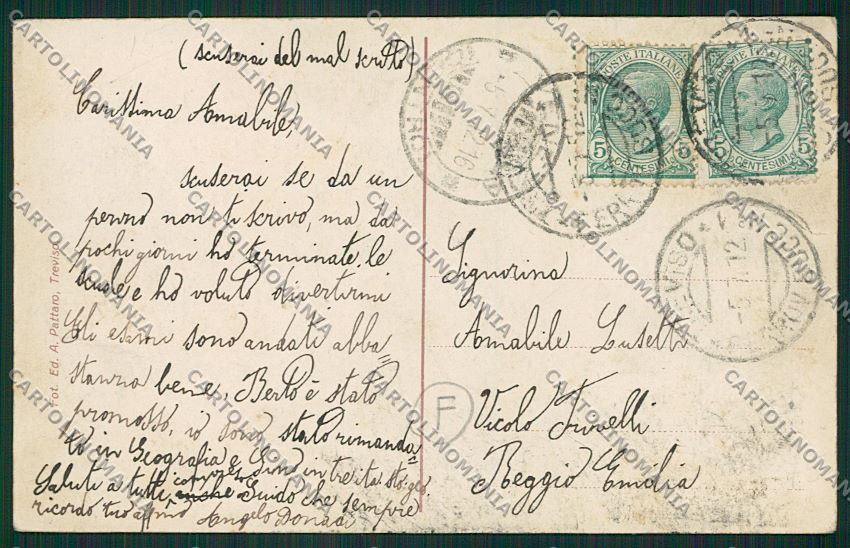 (scuserai del mal scritto)
Carissima Amabile,
scuserai se da un
perzo non ti scrivo, ma da
pochi giorni ho terminate le
scuole e ho voluto divertirmi
Gli esami sono andati abba=
stanza bene, Berto è stato
promosso, io sono stato rimanda=
to in Geografia e Gino in tre
Saluti a tutti, compreso Guido che sempre
ricordo tuo affmo Angelo Donadi
Fot. Ed. A. Pattaro, Treviso
POSTE ITALIANE
5 CENTESIMI 5
POSTE ITALIANE
5 CENTESIMI 5
TREVISO
Signorina
Amabile Lusetti
F
Vicolo
Reggio Emilia
CARTOLINOMANIA